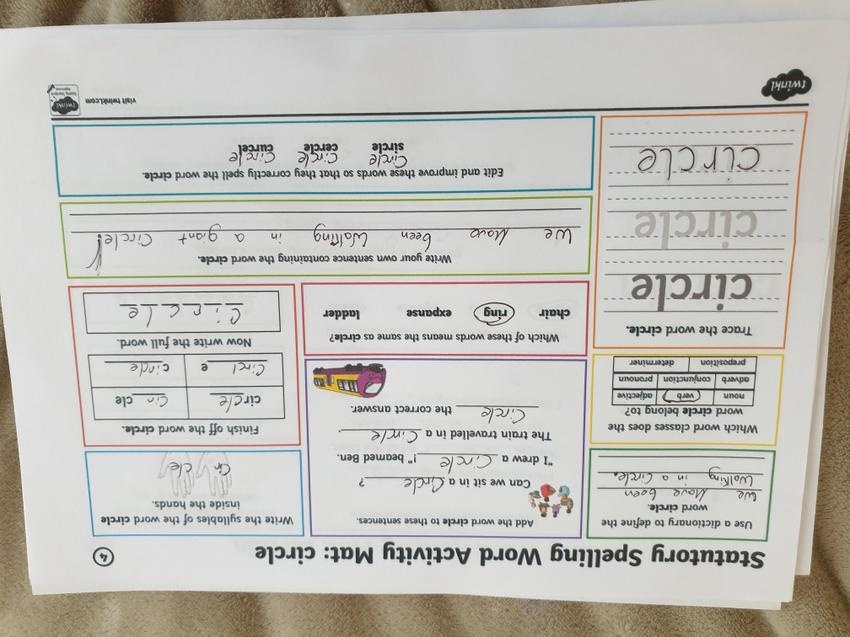 Statutory Spelling Word Activity Mat: circle
4
Use a dictionary to define the
word circle.
We Have been
Walking in a Circle.
Add the word circle to these sentences
Can we sit in a Circle?
"I drew a Circle!" beamed Ben.
The train travelled in a Circle
Circle the correct answer.
Write the syllables of the word circle
inside the hands.
Cir cle
Which word classes does the
word circle belong to?
noun verb adjective
adverb conjunction pronoun
preposition determiner
Which of these words means the same as circle?
chair ring expanse ladder
Finish off the word circle.
circle Circle
Circle circle
Now write the full word.
Circle
Trace the word circle.
circle
circle
circle
Write your own sentence containing the word circle.
We Have been Walking in a giant Circle!
Edit and improve these words so that they correctly spell the word circle.
Circle Circle Circle
sircle cercle curcel
twinkl
visit twinkl.com
twinkl